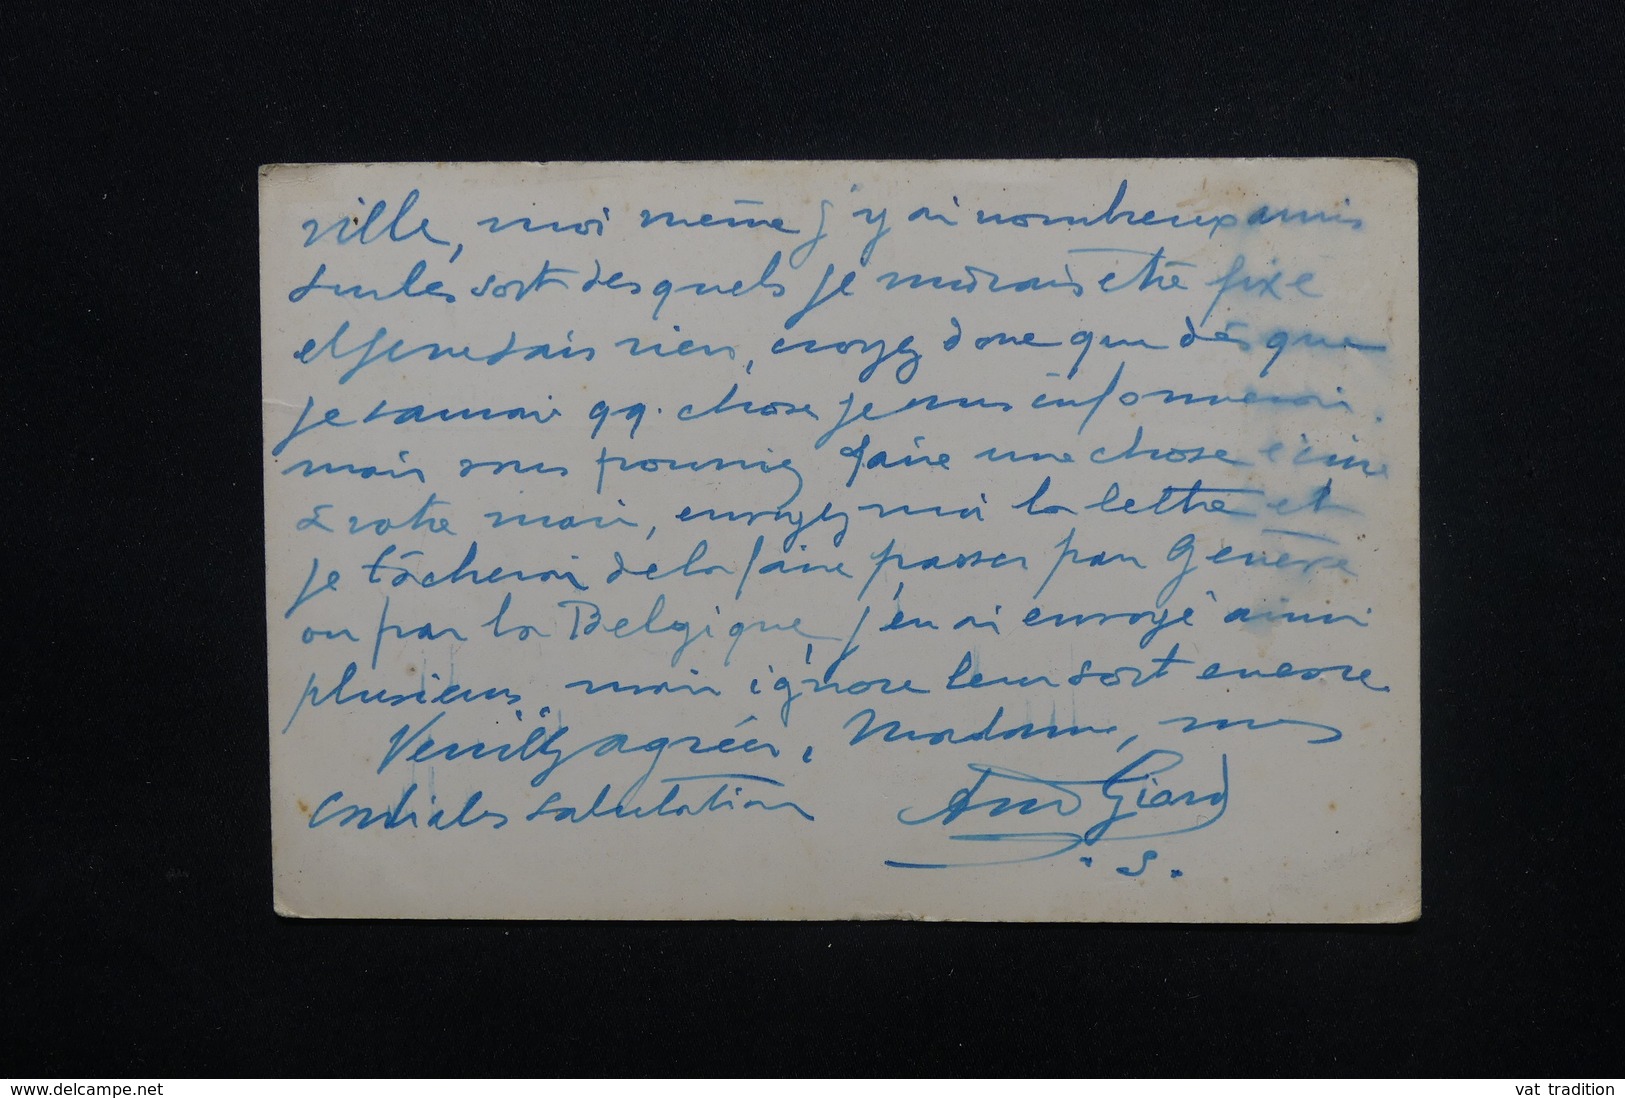 ville, moi même j'y ai nombreux amis
sur les sort desquels je voudrais être fixé
et je ne sais rien, croyez donc que dès que
je saurai qq. chose je vous informerai.
mais vous pourriez faire une chose écrire
à votre mari, envoyez moi la lettre et
je tâcherai de la faire passer par Genève
ou par la Belgique, j'en ai envoyé ainsi
plusieurs, mais ignore leur sort encore
Veuillez agréer, Madame, mes
cordiales salutations Giard
. S.
www.delcampe.net
vat tradition